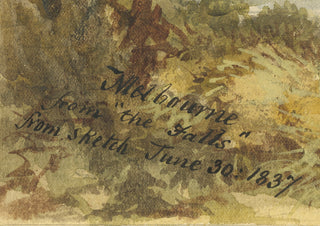 Melbourne
from "the Falls"
from sketch June 30: 1837